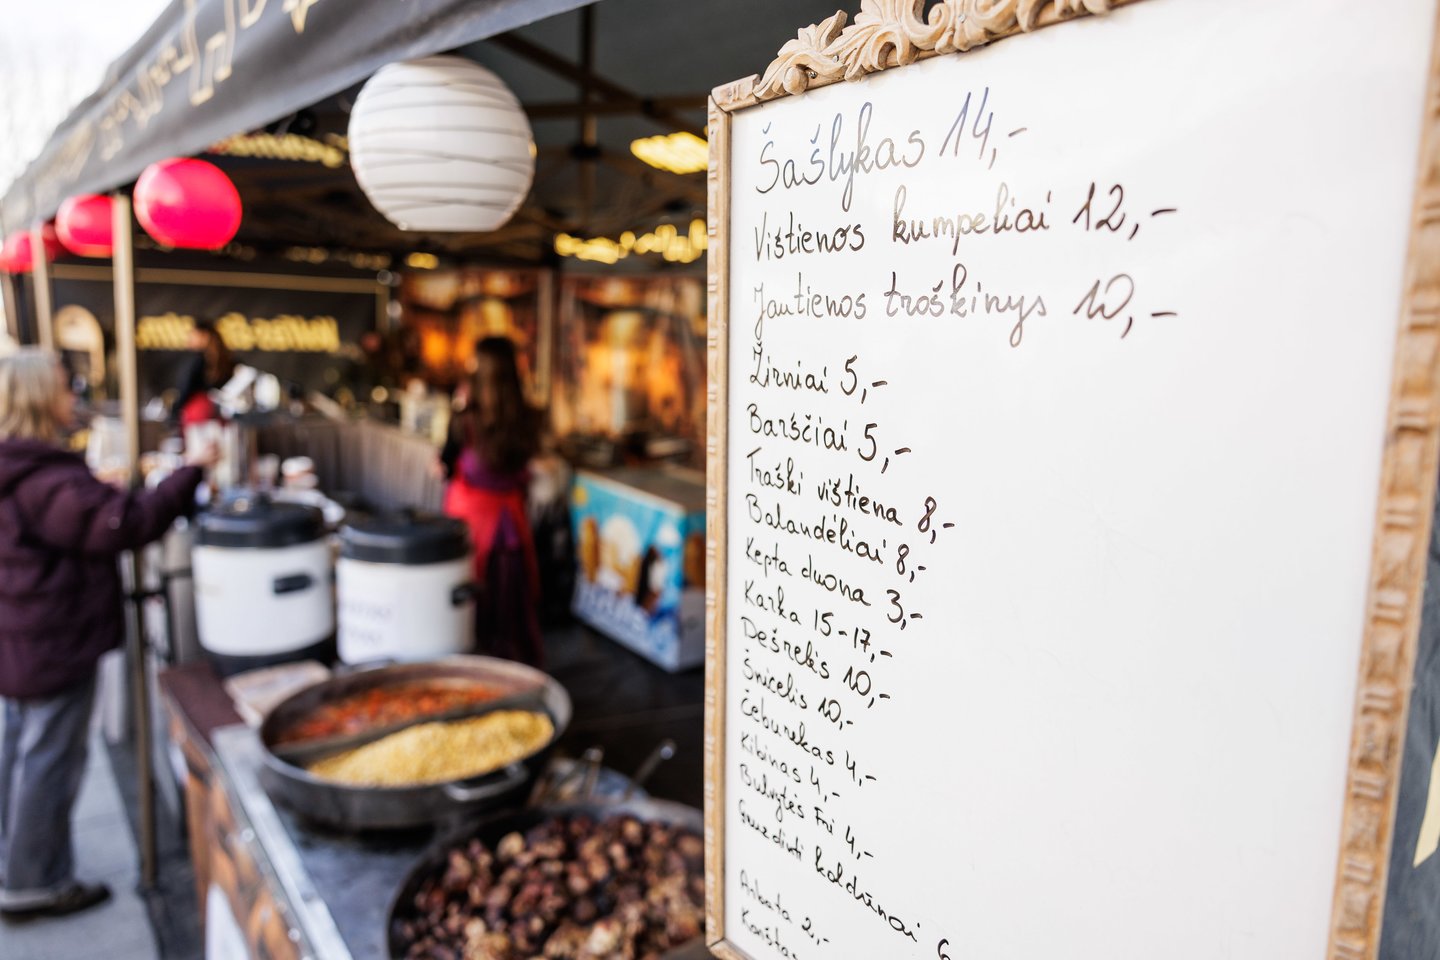 Šašlykas 14,-
Vištienos kumpeliai 12,-
Jautienos troškinys 10,-
Žirniai 5,-
Barščiai 5,-
Traški vištiena 8,-
Balandėliai 8,-
Kepta duona 3,-
Karka 15-17,-
Dešrelės 10,-
Šnicelis 10,-
Čeburekas 4,-
Kibinas 4,-
Bulvytės Fri 4,-
Gruzdinti koldūnai 6
Arbata 2,-